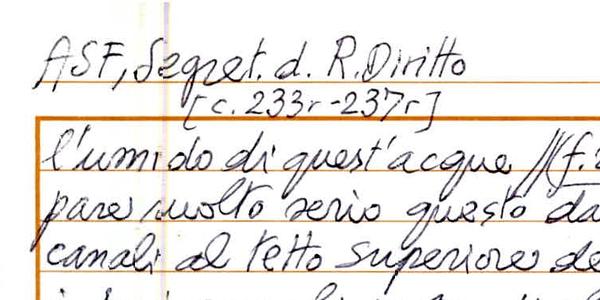 ASF, Segret. d. R. Diritto
[c. 233r-237r]
l'umido di quest'acque //(f.
pare molto serio questo da
canali al tetto superiore de